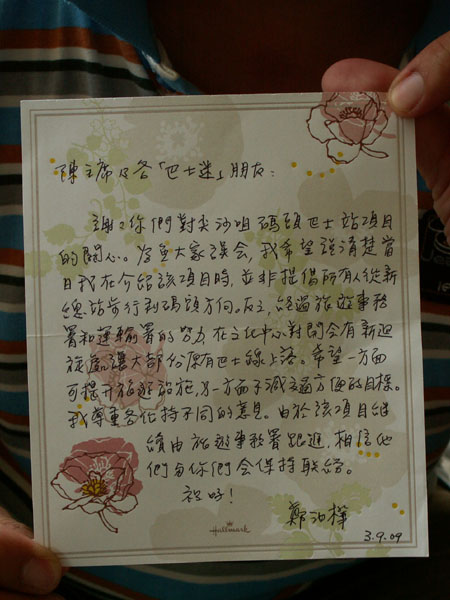 陳主席及各「巴士迷」朋友：
謝謝你們對尖沙咀碼頭巴士站項目
的關心。為免大家誤會，我希望說清楚當
日我在介紹該項目時，並非提倡所有人從新
總站步行到碼頭方向。反之，經過旅遊事務
署和運輸署的努力，在文化中心對開會有新迴
旋處讓大部份原有巴士線上落。希望一方面
可提升旅遊設施，另一方面不減交通方便的目標。
我尊重各位持不同的意見。由於該項目繼
續由旅遊事務署跟進，相信他
們與你們會保持聯絡。
祝好！
鄭汝樺
Hallmark
3.9.09